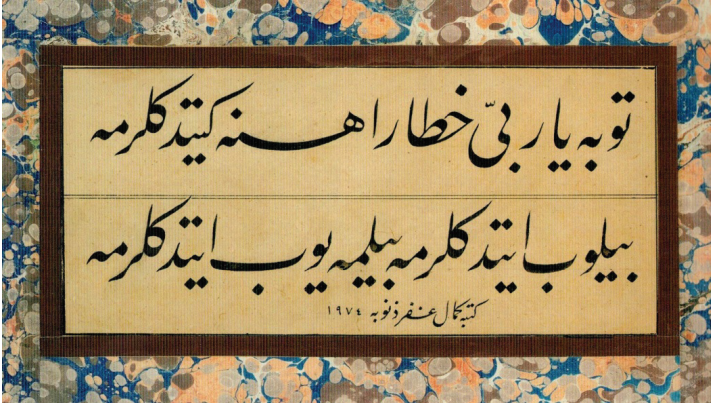 توبه یا ربّی خطا راهنه کیتدکلرمه
بیلوب ایتدکلرمه بیلمه یوب ایتدکلرمه
کتبه کمال غفر ذنوبه ١٩٧٤